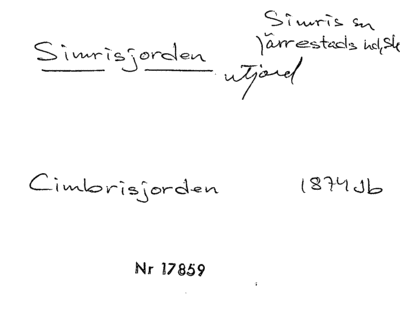 Simris sn
Simrisjorden Järrestads hd, Sk
utjord
Cimbrisjorden 1874 Jb
Nr 17859